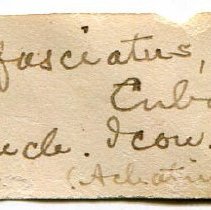 fasciatus,
Cuba
Icon.
(Achatin